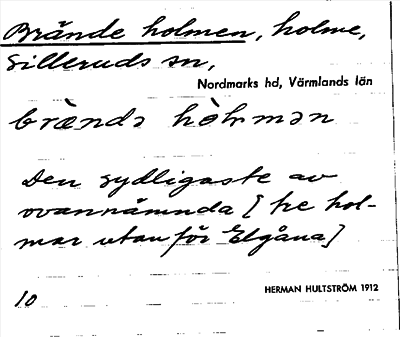 Brände holmen, holme,
Silleruds sn,
Nordmarks hd, Värmlands län
brǽndə hòl̥mən
Den sydligaste av
ovannämnda [tre hol-
mar utanför Elgåna]
10
HERMAN HULTSTRÖM 1912